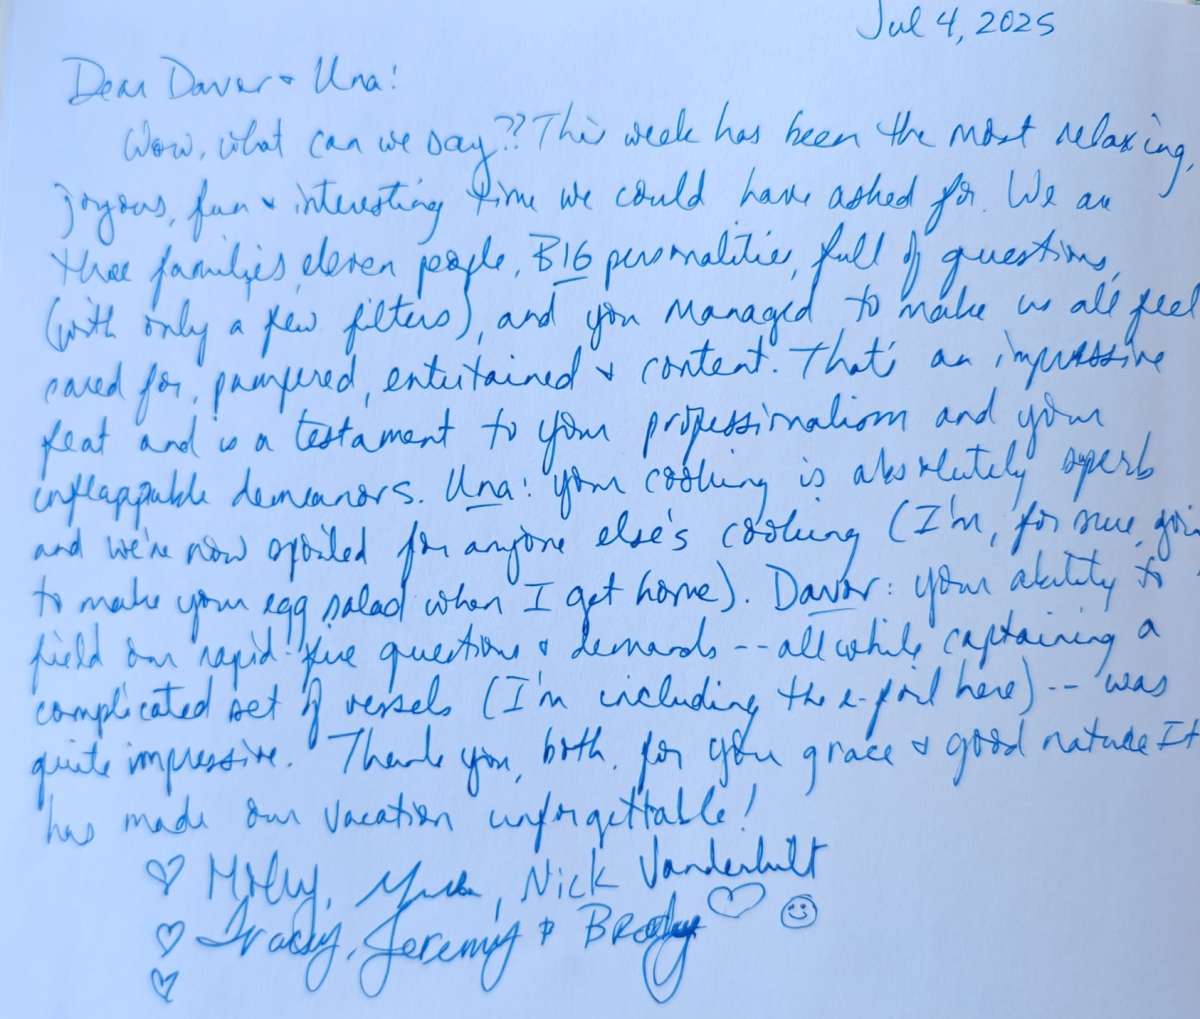 Jul 4, 2025
Dear Davor & Una!
Wow, what can we say?? This week has been the most relaxing,
joyous, fun & interesting time we could have asked for. We are
three families, eleven people, BIG personalities, full of questions,
(with only a few filters), and you managed to make us all feel
cared for, pampered, entertained & content. That's an impressive
feat and is a testament to your professionalism and your
unflappable demeanors. Una: your cooking is absolutely superb
and we're now spoiled for anyone else's cooking (I'm, for sure, goin
to make your egg salad when I get home). Davor: your ability to
field our rapid-fire questions & demands -- all while captaining a
complicated set of vessels (I'm including the e-foil here) -- was
quite impressive. Thank you, both, for your grace & good nature It
has made our vacation unforgettable!
♡ Molly, Nick Vanderbilt
♡ Tracy, Jeremy & Brody ♡ ☺
♡